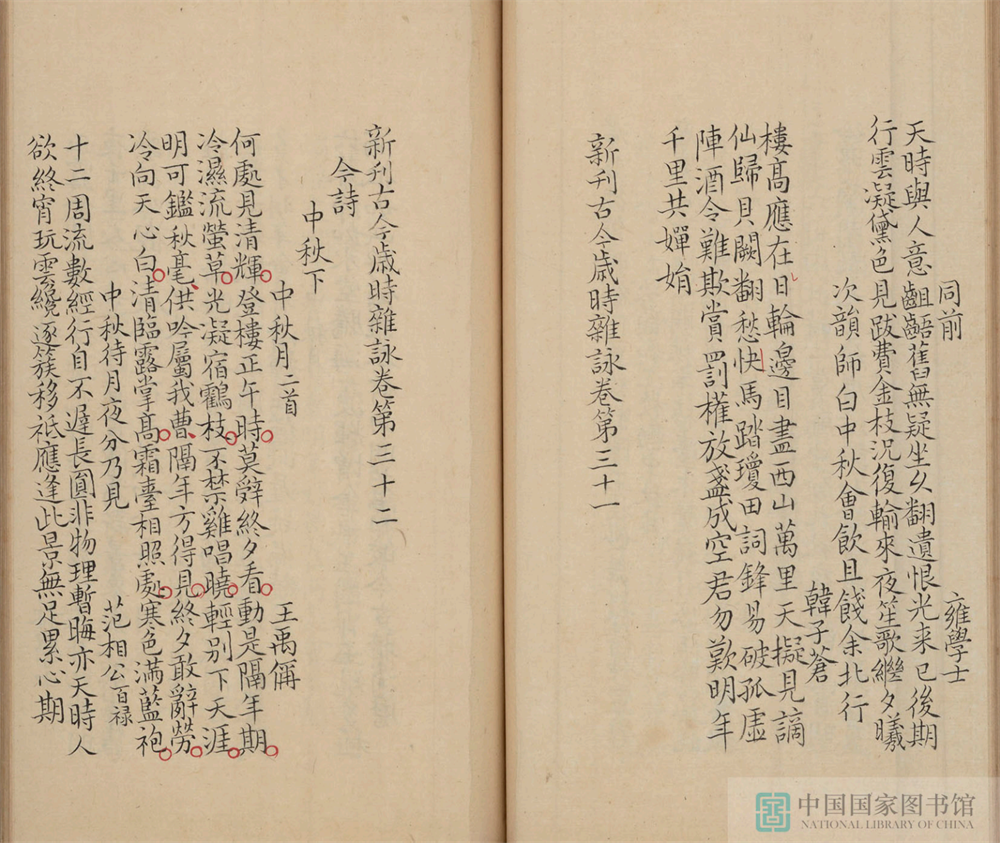 同前
雍學士
天時與人意齟齬舊無疑坐久翻遺恨光来已後期
行雲凝黛色見跋費金枝況復輸來夜笙歌繼夕曦
次韻師白中秋會飲且餞余北行
韓子蒼
樓髙應在日輪邊目盡西山萬里天擬見謫
仙歸貝闕翻愁快馬踏瓊田詞鋒易破孤虛
陣酒令難欺賞罰權放盞成空君勿歎明年
千里共嬋娟
新刋古今歳時雜詠卷第三十一
新刋古今歳時雜詠卷第三十二
今詩
中秋下
中秋月二首
王禹偁
何處見清輝登樓正午時莫辤終夕看動是隔年期
冷濕流螢草光凝宿鸖枝不禁雞唱曉輕别下天涯
明可鑑秋毫供吟屬我曹隔年方得見終夕敢辭勞
冷向天心白清臨露掌髙霜臺相照處寒色滿藍袍
中秋待月夜分乃見
范相公百禄
十二周流數經行自不遲長圓非物理暫晦亦天時人
欲終宵玩雲纔逐簇移祗應逢此景無足累心期
中国国家图书馆
NATIONAL LIBRARY OF CHINA